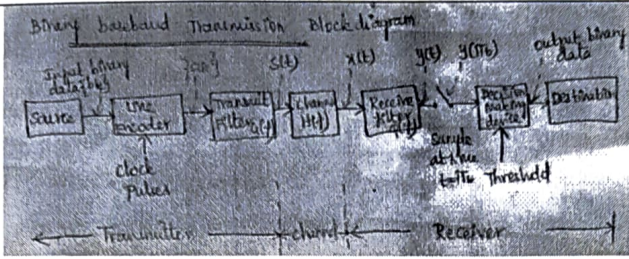 Binary baseband Transmission Block diagram
Input binary data {bk}
{ak}
s(t)
x(t)
y(t)
y(iTb)
output binary data
Source
Line Encoder
Transmit Filter G(f)
Channel H(f)
Receive Filter
Decision making device
Destination
Clock Pulses
Sample at time t=iTb
Threshold
Transmitter
channel
Receiver